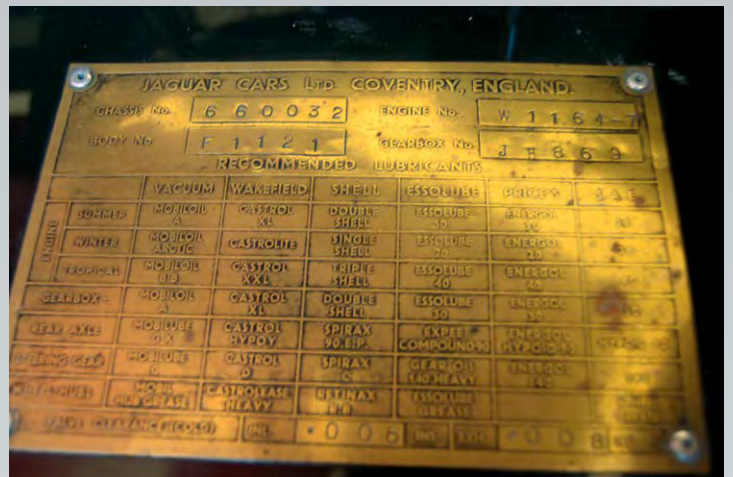 JAGUAR CARS LTD COVENTRY, ENGLAND.
CHASSIS No. 660032 ENGINE No. W 1164-7
BODY No. F1121 GEARBOX No. 869
RECOMMENDED LUBRICANTS
VACUUM WAKEFIELD SHELL ESSOLUBE PRICE'S S.A.E.
ENGINE
SUMMER MOBILOIL A CASTROL XL DOUBLE SHELL ESSOLUBE 30 ENERGOL 30
WINTER MOBILOIL ARCTIC CASTROLITE SINGLE SHELL ESSOLUBE 20 ENERGOL 20
TROPICAL MOBILOIL BB CASTROL XXL TRIPLE SHELL ESSOLUBE 40 ENERGOL 40
GEARBOX MOBILOIL A CASTROL XL DOUBLE SHELL ESSOLUBE 30 ENERGOL 30
REAR AXLE MOBILUBE GX CASTROL HYPOY SPIRAX 90.E.P. EXPEE COMPOUND 90 ENERGOL HYPOID 90
STEERING GEAR MOBILUBE C CASTROL D SPIRAX GEAR OIL 140 HEAVY ENERGOL 140
WHEEL HUBS MOBIL HUB GREASE CASTROLEASE HEAVY RETINAX ESSOLUBE GREASE
VALVE CLEARANCE (COLD) INL. .006 INS. EXH. .008